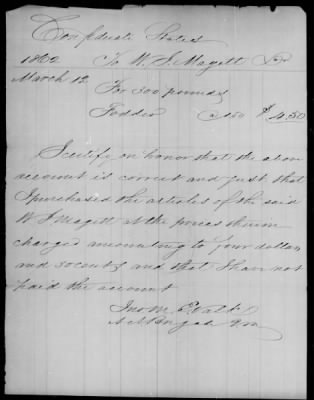 Confederate States
1862 To W. S. Magett Dr
March 12
For 300 pounds
Fodder @ 150 $ 4.50
I certify on honor that the above
account is correct and just that
I purchased the articles of the said
W S Magett at the prices therein
charged amounting to four dollars
and 50 cents and that I have not
paid the account
Jno M.